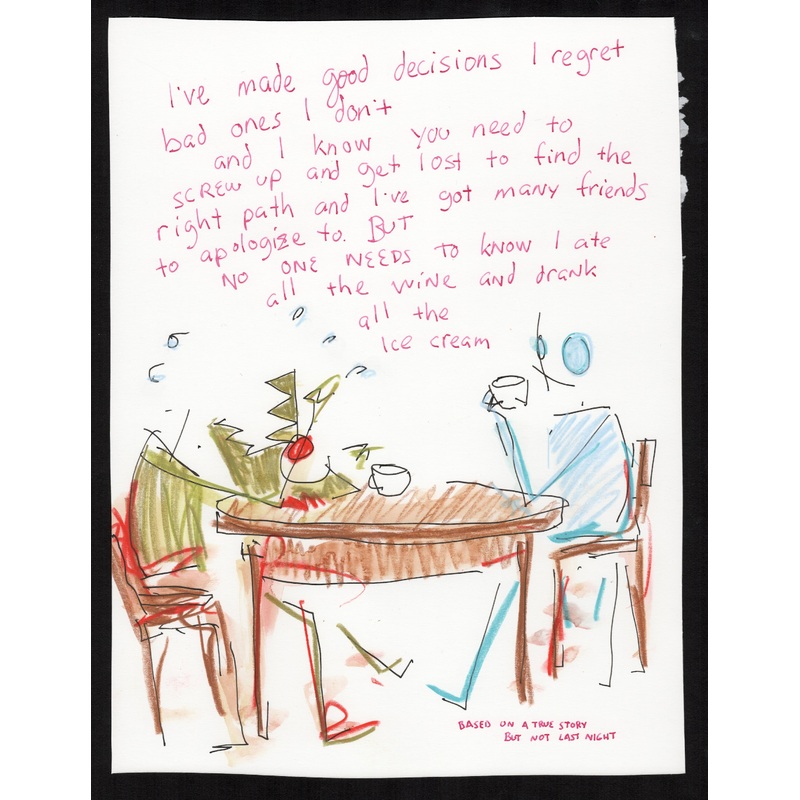 I've made good decisions I regret
bad ones I don't
and I know you need to
screw up and get lost to find the
right path and I've got many friends
to apologize to. BUT
NO ONE NEEDS TO know I ate
all the wine and drank
all the
Ice cream
BASED ON A TRUE STORY
BUT NOT LAST NIGHT